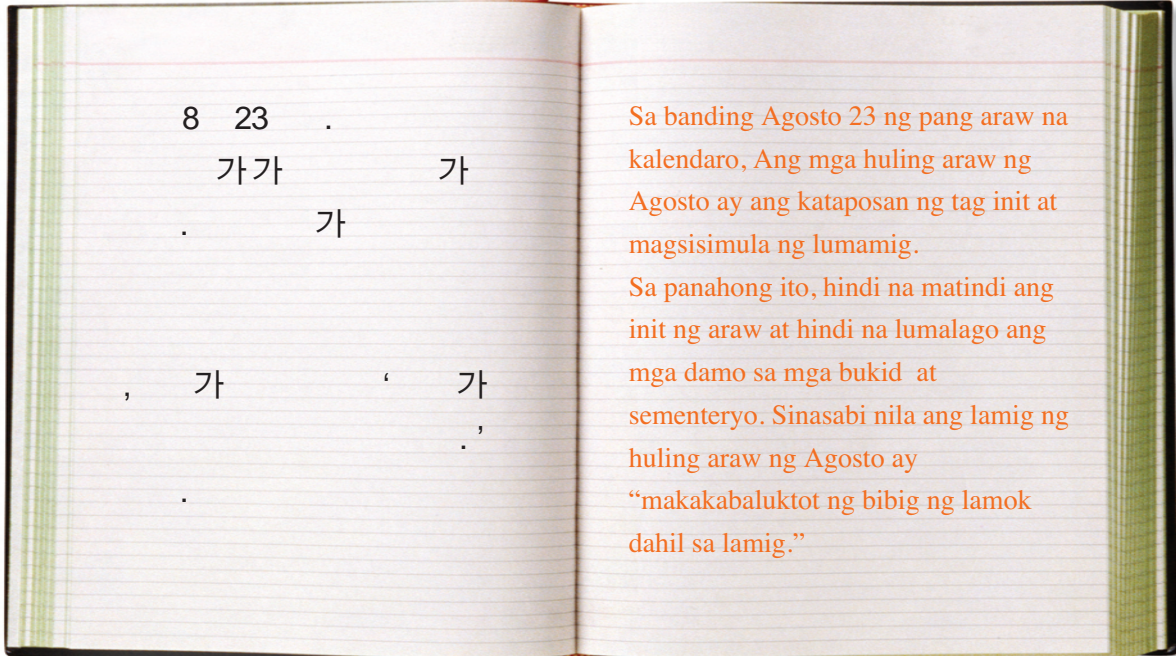 8 23 .
가가 가
. 가
, 가 ‘ 가
.’
.
Sa banding Agosto 23 ng pang araw na
kalendaro, Ang mga huling araw ng
Agosto ay ang kataposan ng tag init at
magsisimula ng lumamig.
Sa panahong ito, hindi na matindi ang
init ng araw at hindi na lumalago ang
mga damo sa mga bukid at
sementeryo. Sinasabi nila ang lamig ng
huling araw ng Agosto ay
“makakabaluktot ng bibig ng lamok
dahil sa lamig.”